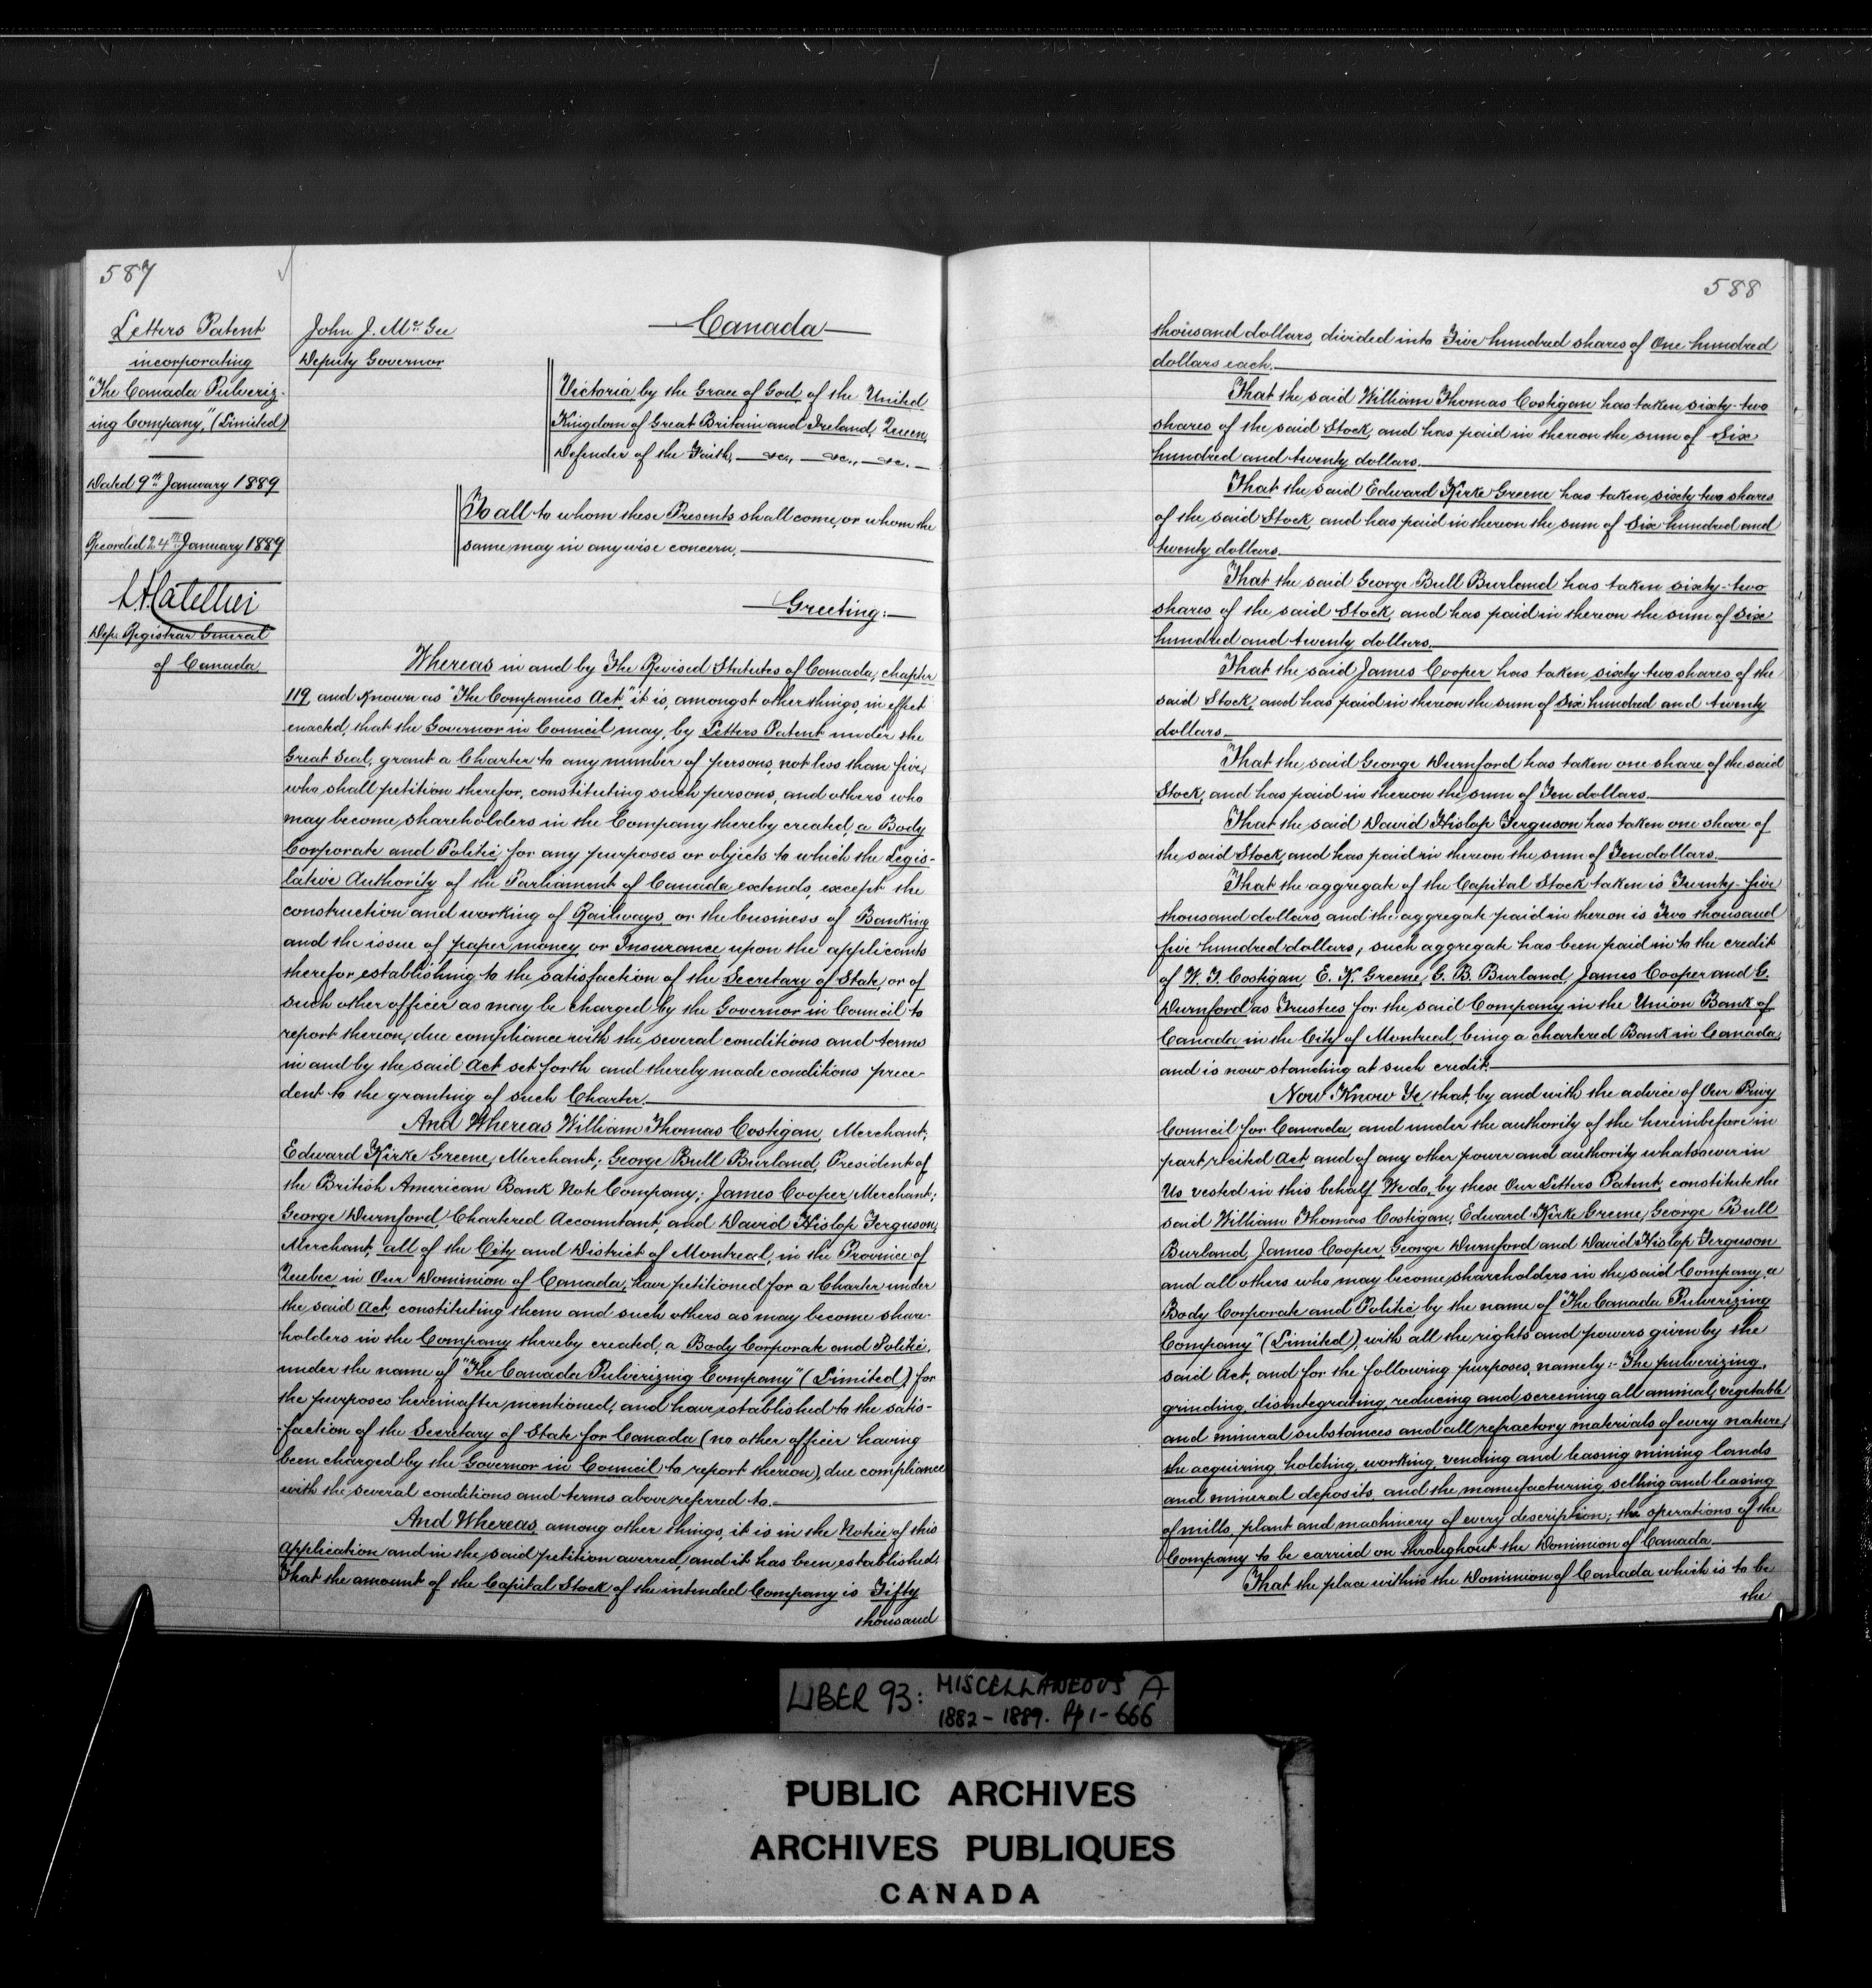 587
Letters Patent
incorporating
"The Canada Pulveriz-
ing Company," (Limited)
Dated 9th January 1889
Recorded 24th January 1889
Dep. Registrar General
of Canada
John J. McGee
Deputy Governor
Canada
Victoria by the Grace of God, of the United
Kingdom of Great Britain and Ireland, Queen,
Defender of the Faith, &c., &c., &c.
To all to whom these Presents shall come, or whom the
same may in anywise concern,
Greeting:
Whereas in and by The Revised Statutes of Canada, chapter
119, and known as "The Companies Act," it is, amongst other things, in effect
enacted, that the Governor in Council may, by Letters Patent under the
Great Seal, grant a Charter to any number of persons, not less than five,
who shall petition therefor, constituting such persons, and others who
may become shareholders in the Company thereby created, a Body
Corporate and Politic, for any purposes or objects to which the Legis-
lative Authority of the Parliament of Canada extends, except the
construction and working of Railways, or the business of Banking
and the issue of paper money, or Insurance upon the applicants
therefor, establishing to the satisfaction of the Secretary of State, or of
such other officer as may be charged by the Governor in Council to
report thereon, due compliance with the several conditions and terms
in and by the said Act set forth and thereby made conditions prece-
dent to the granting of such Charter.
And Whereas William Thomas Costigan, Merchant;
Edward Kirke Greene, Merchant; George Bull Burland, President of
the British American Bank Note Company; James Cooper, Merchant;
George Durnford, Chartered Accountant, and David Hislop Ferguson,
Merchant, all of the City and District of Montreal, in the Province of
Quebec, in Our Dominion of Canada, have petitioned for a Charter under
the said Act, constituting them and such others as may become share-
holders in the Company thereby created, a Body Corporate and Politic,
under the name of "The Canada Pulverizing Company" (Limited), for
the purposes hereinafter mentioned, and have established to the satis-
-faction of the Secretary of State for Canada (no other officer having
been charged by the Governor in Council to report thereon), due compliance
with the several conditions and terms above referred to.
And Whereas, among other things, it is in the Notice of this
Application and in the said petition averred, and it has been established:
That the amount of the Capital Stock of the intended Company is Fifty
thousand
588
thousand dollars, divided into Five hundred shares of One hundred
dollars each.
That the said William Thomas Costigan has taken sixty-two
shares of the said Stock, and has paid in thereon the sum of Six
hundred and twenty dollars.
That the said Edward Kirke Greene has taken sixty two shares
of the said Stock, and has paid in thereon the sum of Six hundred and
twenty dollars.
That the said George Bull Burland has taken sixty-two
shares of the said Stock, and has paid in thereon the sum of Six
hundred and twenty dollars.
That the said James Cooper has taken sixty two shares of the
said Stock, and has paid in thereon the sum of Six hundred and twenty
dollars.
That the said George Durnford has taken one share of the said
Stock, and has paid in thereon the sum of Ten dollars.
That the said David Hislop Ferguson has taken one share of
the said Stock, and has paid in thereon the sum of Ten dollars.
That the aggregate of the Capital Stock taken is Twenty-five
thousand dollars, and the aggregate paid in thereon is Two thousand
five hundred dollars; such aggregate has been paid in to the credit
of W. T. Costigan, E. K. Greene, G. B. Burland, James Cooper and G.
Durnford as Trustees for the said Company in the Union Bank of
Canada in the City of Montreal, being a chartered Bank in Canada,
and is now standing at such credit.
Now Know Ye, that, by and with the advice of Our Privy
Council for Canada, and under the authority of the hereinbefore in
part recited Act, and of any other power and authority whatsoever in
Us vested in this behalf, We do, by these Our Letters Patent, constitute the
said William Thomas Costigan, Edward Kirke Greene, George Bull
Burland, James Cooper, George Durnford and David Hislop Ferguson
and all others who may become shareholders in the said Company, a
Body Corporate and Politic, by the name of "The Canada Pulverizing
Company" (Limited), with all the rights and powers given by the
said Act, and for the following purposes, namely:- The pulverizing,
grinding, disintegrating, reducing and screening all animal, vegetable
and mineral substances and all refractory materials of every nature;
the acquiring, holding, working, vending and leasing mining lands
and mineral deposits, and the manufacturing, selling and leasing
of mills, plant and machinery of every description; the operations of the
Company to be carried on throughout the Dominion of Canada.
That the place within the Dominion of Canada which is to be
the
LIBER 93: MISCELLANEOUS A
1882-1889. Pp 1-666
PUBLIC ARCHIVES
ARCHIVES PUBLIQUES
CANADA